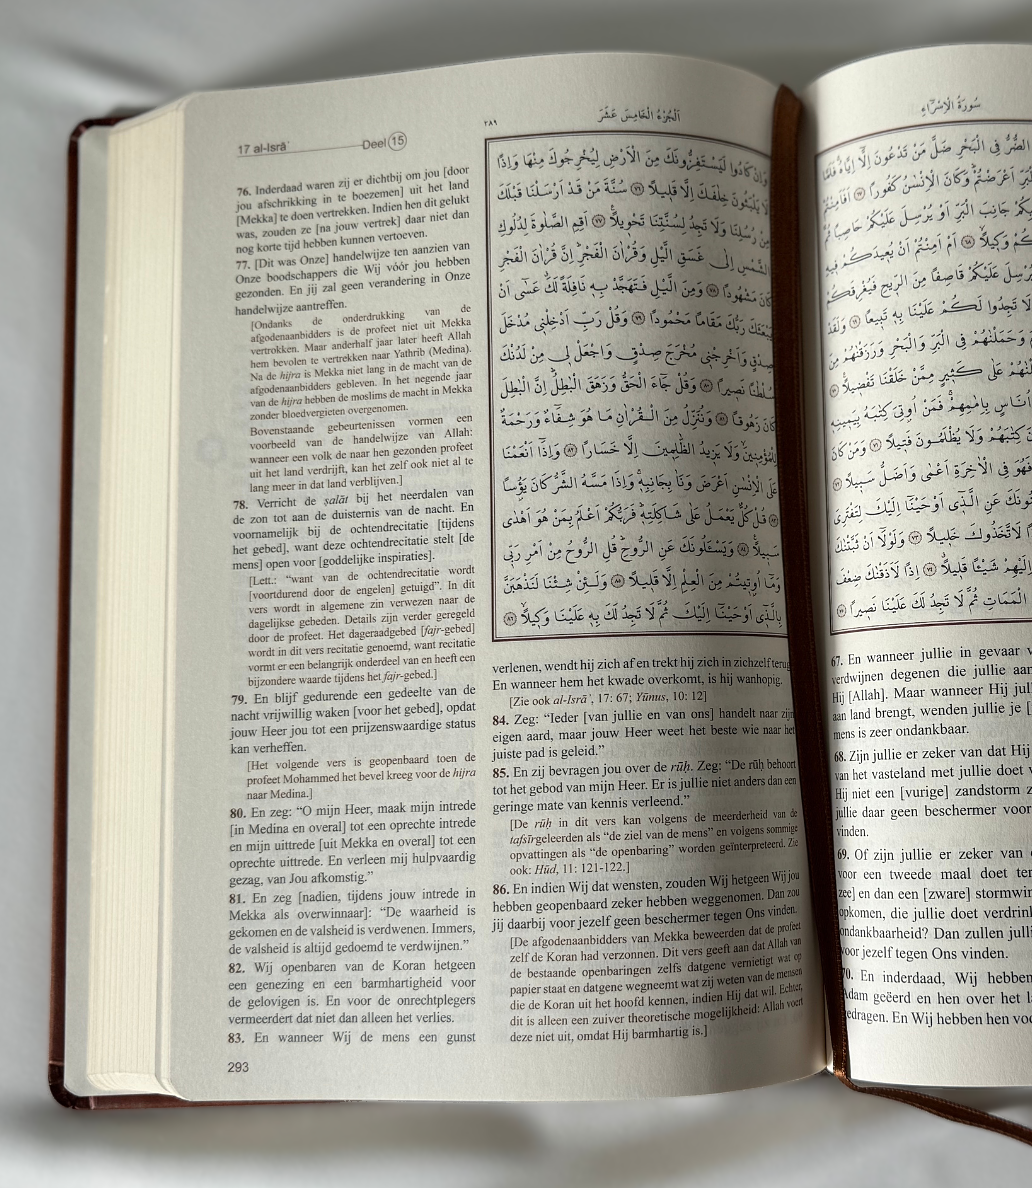 17 al-Isrā’ Deel 15
76. Inderdaad waren zij er dichtbij om jou [door
jou afschrikking in te boezemen] uit het land
[Mekka] te doen vertrekken. Indien hen dit gelukt
was, zouden ze [na jouw vertrek] daar niet dan
nog korte tijd hebben kunnen vertoeven.
77. [Dit was Onze] handelwijze ten aanzien van
Onze boodschappers die Wij vóór jou hebben
gezonden. En jij zal geen verandering in Onze
handelwijze aantreffen.
[Ondanks de onderdrukking van de
afgodenaanbidders is de profeet niet uit Mekka
vertrokken. Maar anderhalf jaar later heeft Allah
hem bevolen te vertrekken naar Yathrib (Medina).
Na de hijra is Mekka niet lang in de macht van de
afgodenaanbidders gebleven. In het negende jaar
van de hijra hebben de moslims de macht in Mekka
zonder bloedvergieten overgenomen.
Bovenstaande gebeurtenissen vormen een
voorbeeld van de handelwijze van Allah:
wanneer een volk de naar hen gezonden profeet
uit het land verdrijft, kan het zelf ook niet al te
lang meer in dat land verblijven.]
78. Verricht de ṣalāt bij het neerdalen van
de zon tot aan de duisternis van de nacht. En
voornamelijk bij de ochtendrecitatie [tijdens
het gebed], want deze ochtendrecitatie stelt [de
mens] open voor [goddelijke inspiraties].
[Lett.: “want van de ochtendrecitatie wordt
[voortdurend door de engelen] getuigd”. In dit
vers wordt in algemene zin verwezen naar de
dagelijkse gebeden. Details zijn verder geregeld
door de profeet. Het dageraadgebed [fajr-gebed]
wordt in dit vers recitatie genoemd, want recitatie
vormt er een belangrijk onderdeel van en heeft een
bijzondere waarde tijdens het fajr-gebed.]
79. En blijf gedurende een gedeelte van de
nacht vrijwillig waken [voor het gebed], opdat
jouw Heer jou tot een prijzenswaardige status
kan verheffen.
[Het volgende vers is geopenbaard toen de
profeet Mohammed het bevel kreeg voor de hijra
naar Medina.]
80. En zeg: “O mijn Heer, maak mijn intrede
[in Medina en overal] tot een oprechte intrede
en mijn uittrede [uit Mekka en overal] tot een
oprechte uittrede. En verleen mij hulpvaardig
gezag, van Jou afkomstig.”
81. En zeg [nadien, tijdens jouw intrede in
Mekka als overwinnaar]: “De waarheid is
gekomen en de valsheid is verdwenen. Immers,
de valsheid is altijd gedoemd te verdwijnen.”
82. Wij openbaren van de Koran hetgeen
een genezing en een barmhartigheid voor
de gelovigen is. En voor de onrechtplegers
vermeerdert dat niet dan alleen het verlies.
83. En wanneer Wij de mens een gunst
293
٢٨٩ اَلْجُزْءُ الْخَامِسَ عَشَرَ
وَاِنْ كَادُوا لَيَسْتَفِزُّونَكَ مِنَ الْاَرْضِ لِيُخْرِجُوكَ مِنْهَا وَاِذًا
لَا يَلْبَثُونَ خِلَافَكَ اِلَّا قَلِيلًا ﴿٧٦﴾ سُنَّةَ مَنْ قَدْ اَرْسَلْنَا قَبْلَكَ
مِنْ رُسُلِنَا وَلَا تَجِدُ لِسُنَّتِنَا تَحْوِيلًا ﴿٧٧﴾ اَقِمِ الصَّلٰوةَ لِدُلُوكِ
الشَّمْسِ اِلٰى غَسَقِ الَّيْلِ وَقُرْاٰنَ الْفَجْرِ اِنَّ قُرْاٰنَ الْفَجْرِ
كَانَ مَشْهُودًا ﴿٧٨﴾ وَمِنَ الَّيْلِ فَتَهَجَّدْ بِهِ نَافِلَةً لَكَ عَسٰى اَنْ
يَبْعَثَكَ رَبُّكَ مَقَامًا مَحْمُودًا ﴿٧٩﴾ وَقُلْ رَبِّ اَدْخِلْنِى مُدْخَلَ
صِدْقٍ وَاَخْرِجْنِى مُخْرَجَ صِدْقٍ وَاجْعَلْ لِى مِنْ لَدُنْكَ
سُلْطَانًا نَصِيرًا ﴿٨٠﴾ وَقُلْ جَاءَ الْحَقُّ وَزَهَقَ الْبَاطِلُ اِنَّ الْبَاطِلَ
كَانَ زَهُوقًا ﴿٨١﴾ وَنُنَزِّلُ مِنَ الْقُرْاٰنِ مَا هُوَ شِفَاءٌ وَرَحْمَةٌ
لِلْمُؤْمِنِينَ وَلَا يَزِيدُ الظَّالِمِينَ اِلَّا خَسَارًا ﴿٨٢﴾ وَاِذَا اَنْعَمْنَا
عَلَى الْاِنْسَانِ اَعْرَضَ وَنَاٰ بِجَانِبِهِ وَاِذَا مَسَّهُ الشَّرُّ كَانَ يَؤُسًا
﴿٨٣﴾ قُلْ كُلٌّ يَعْمَلُ عَلٰى شَاكِلَتِهِ فَرَبُّكُمْ اَعْلَمُ بِمَنْ هُوَ اَهْدٰى
سَبِيلًا ﴿٨٤﴾ وَيَسْـَٔلُونَكَ عَنِ الرُّوحِ قُلِ الرُّوحُ مِنْ اَمْرِ رَبِّى
وَمَا اُوتِيتُمْ مِنَ الْعِلْمِ اِلَّا قَلِيلًا ﴿٨٥﴾ وَلَئِنْ شِئْنَا لَنَذْهَبَنَّ
بِالَّذِى اَوْحَيْنَا اِلَيْكَ ثُمَّ لَا تَجِدُ لَكَ بِهِ عَلَيْنَا وَكِيلًا ﴿٨٦﴾
verlenen, wendt hij zich af en trekt hij zich in zichzelf terug.
En wanneer hem het kwade overkomt, is hij wanhopig.
[Zie ook al-Isrā’, 17: 67; Yūnus, 10: 12]
84. Zeg: “Ieder [van jullie en van ons] handelt naar zijn
eigen aard, maar jouw Heer weet het beste wie naar het
juiste pad is geleid.”
85. En zij bevragen jou over de rūḥ. Zeg: “De rūḥ behoort
tot het gebod van mijn Heer. Er is jullie niet anders dan een
geringe mate van kennis verleend.”
[De rūḥ in dit vers kan volgens de meerderheid van de
tafsīrgeleerden als “de ziel van de mens” en volgens sommige
opvattingen als “de openbaring” worden geïnterpreteerd. Zie
ook: Hūd, 11: 121-122.]
86. En indien Wij dat wensten, zouden Wij hetgeen Wij jou
hebben geopenbaard zeker hebben weggenomen. Dan zou
jij daarbij voor jezelf geen beschermer tegen Ons vinden.
[De afgodenaanbidders van Mekka beweerden dat de profeet
zelf de Koran had verzonnen. Dit vers geeft aan dat Allah van
de bestaande openbaringen zelfs datgene vernietigt wat op
papier staat en datgene wegneemt wat zij weten van de mensen
die de Koran uit het hoofd kennen, indien Hij dat wil. Echter,
dit is alleen een zuiver theoretische mogelijkheid: Allah voert
deze niet uit, omdat Hij barmhartig is.]
سُورَةُ الْاِسْرَاءِ
الضُّرُّ فِى الْبَحْرِ ضَلَّ مَنْ تَدْعُونَ اِلَّا اِيَّاهُ فَلَمَّا
اَعْرَضْتُمْ وَكَانَ الْاِنْسَانُ كَفُورًا ﴿٦٧﴾ اَفَاَمِنْتُمْ
جَانِبَ الْبَرِّ اَوْ يُرْسِلَ عَلَيْكُمْ حَاصِبًا ثُمَّ
وَكِيلًا ﴿٦٨﴾ اَمْ اَمِنْتُمْ اَنْ يُعِيدَكُمْ فِيهِ
عَلَيْكُمْ قَاصِفًا مِنَ الرِّيحِ فَيُغْرِقَكُمْ
لَا تَجِدُوا لَكُمْ عَلَيْنَا بِهِ تَبِيعًا ﴿٦٩﴾ وَلَقَدْ
وَحَمَلْنَاهُمْ فِى الْبَرِّ وَالْبَحْرِ وَرَزَقْنَاهُمْ مِنَ
عَلٰى كَثِيرٍ مِمَّنْ خَلَقْنَا تَفْضِيلًا ﴿٧٠﴾
اُنَاسٍ بِاِمَامِهِمْ فَمَنْ اُوتِىَ كِتَابَهُ بِيَمِينِهِ
كِتَابَهُمْ وَلَا يُظْلَمُونَ فَتِيلًا ﴿٧١﴾ وَمَنْ كَانَ
فَهُوَ فِى الْاٰخِرَةِ اَعْمٰى وَاَضَلُّ سَبِيلًا ﴿٧٢﴾
عَنِ الَّذِى اَوْحَيْنَا اِلَيْكَ لِتَفْتَرِىَ
لَاتَّخَذُوكَ خَلِيلًا ﴿٧٣﴾ وَلَوْلَا اَنْ ثَبَّتْنَاكَ
اِلَيْهِمْ شَيْئًا قَلِيلًا ﴿٧٤﴾ اِذًا لَاَذَقْنَاكَ ضِعْفَ
الْمَمَاتِ ثُمَّ لَا تَجِدُ لَكَ عَلَيْنَا نَصِيرًا ﴿٧٥﴾
67. En wanneer jullie in gevaar
verdwijnen degenen die jullie
Hij [Allah]. Maar wanneer Hij
aan land brengt, wenden jullie je
mens is zeer ondankbaar.
68. Zijn jullie er zeker van dat Hij
van het vasteland met jullie doet
Hij niet een [vurige] zandstorm
jullie daar geen beschermer voor
vinden.
69. Of zijn jullie er zeker van
voor een tweede maal doet
zee] en dan een [zware]
opkomen, die jullie doet
ondankbaarheid? Dan zullen
voor jezelf tegen Ons vinden.
70. En inderdaad, Wij hebben
Adam geëerd en hen over het
gedragen. En Wij hebben hen